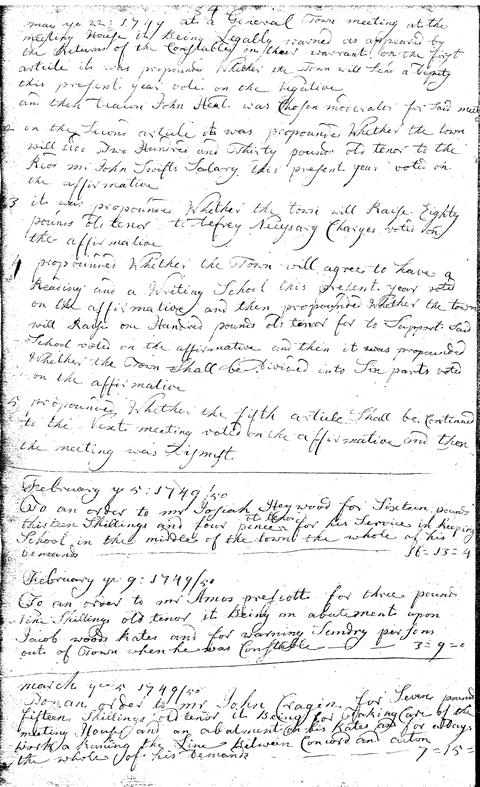 84
may ye 22: 1749 at a General Town meeting at the
meeting House in Being Legally warned as appeared by
the Return of the Constables on their warrant on the first
article it was propounded Whether the Town will send a Deputy
this present year voted on the Negative
and then Deacon John Heal was Chosen moderator for said meet
2 on the Second article it was propounded Whether the town
will Give Two Hundred and Thirty pounds old tenor to the
Revd mr John Swifts Salary this present year voted on
the affirmative
3 it was propounded Whether the town will Raise Eighty
pounds old tenor to defrey Necessary Charges voted on
the affirmative
4 propounded Whether the Town will agree to have a
Reading and a Writing School this present year voted
on the affirmative and then propounded Whether the town
will Raise one Hundred pounds old tenor for to Support said
School voted on the affirmative and then it was propounded
Whether the Town Shall be Divided into Six parts voted
on the affirmative
5 propounded Whether the fifth article Shall be Continued
to the Next meeting voted on the affirmative and then
the meeting was Dismst.
February ye 5: 1749/50
To an order to mr Josiah Heywood for Sixteen pounds
thirteen Shillings and four pence old tenor for his Service in keeping
School in the middle of the town the whole of his
Demands 16=13=4
February ye 9: 1749/50
To an order to mr Amos prescott for three pounds
Nine Shillings old tenor it Being an abatement upon
Jacob woods Rates and for warning Sundry persons
outs of Town when he was Constable 3=9=0
march ye 5 1749/50
To an order to mr John Cragin for Seven pounds
fifteen Shillings old tenor it Being for Taking Care of the
meeting House and an abatment on his Rates and for a Days
work a Runing the Line Between Concord and acton
the whole of his Demands 7=15=